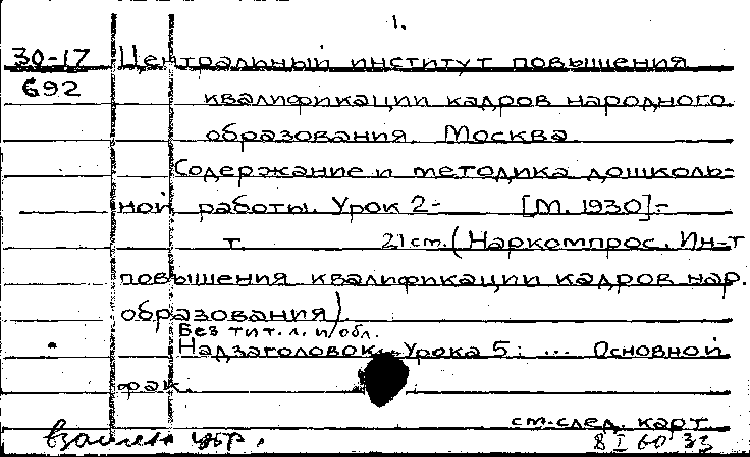 1.
30-17 Центральный институт повышения
692 квалификации кадров народного
образования. Москва
Содержание и методика дошколь-
ной работы. Урок 2- [М. 1930]-
т. 21 см. (Наркомпрос. Ин-т
повышения квалификации кадров нар.
образования)
Без тит. л. и обл.
Надзаголовок. Урока 5: ... Основной
фак.
см. след. карт
взамен
8 I 60 33